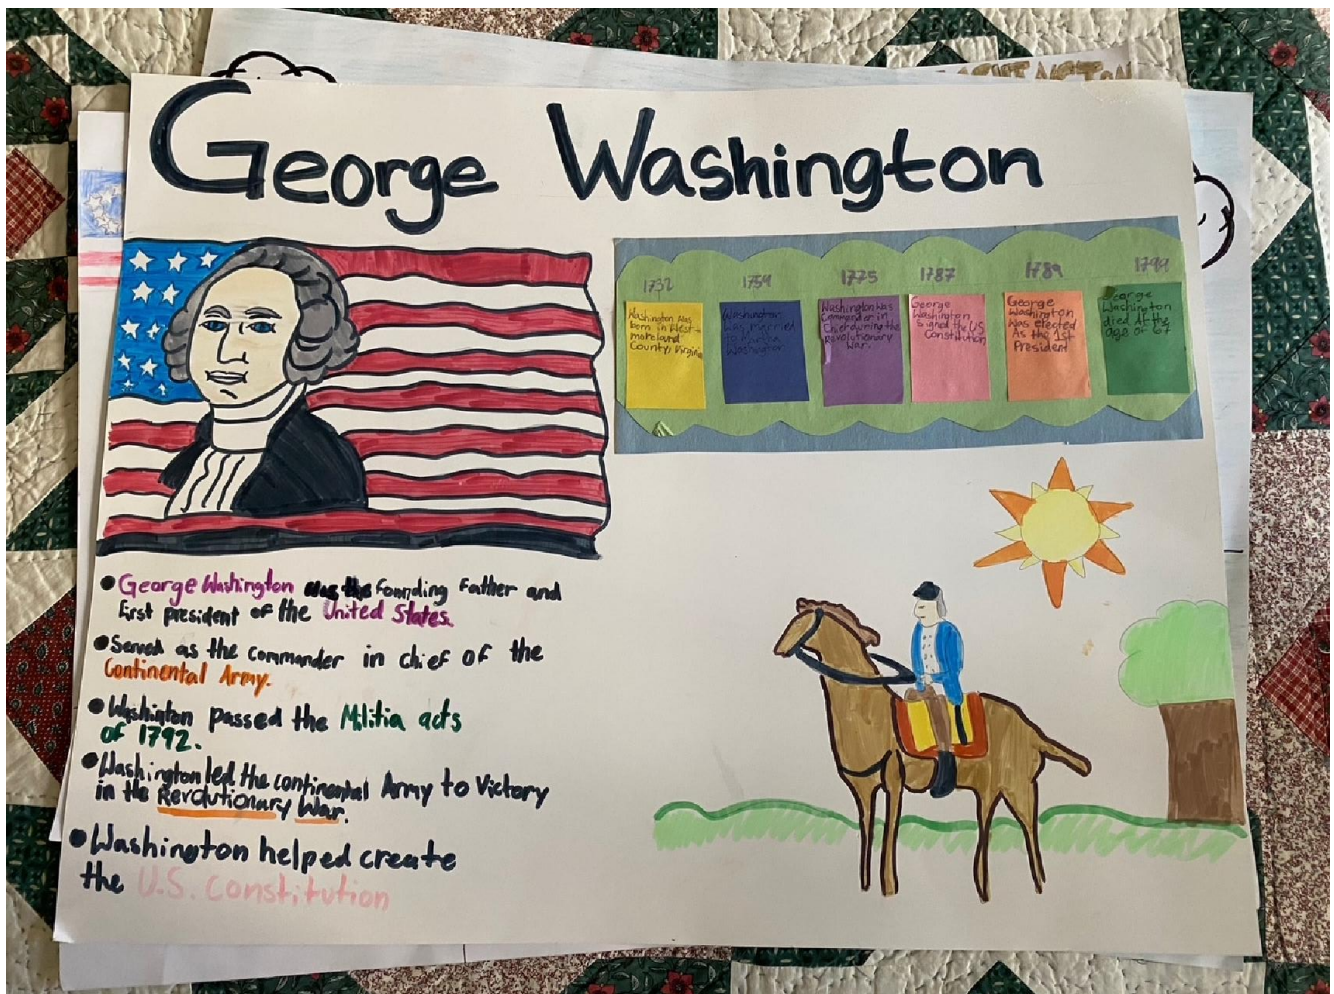 George Washington
1732
Washington was
born in West-
moreland
County, Virginia
1759
Washington
was married
to Martha
Washington
1775
Washington was
Commander in
Chief during the
Revolutionary
War.
1787
George
Washington
signed the US
Constitution
1789
George
Washington
was elected
As the 1st
President
1799
George
Washington
died at the
age of 67
George Washington was the Founding Father and
first president of the United States.
Served as the commander in chief of the
Continental Army.
Washinton passed the Militia acts
of 1792.
Washington led the continental Army to Victory
in the Revolutionary War.
Washington helped create
the U.S. Constitution